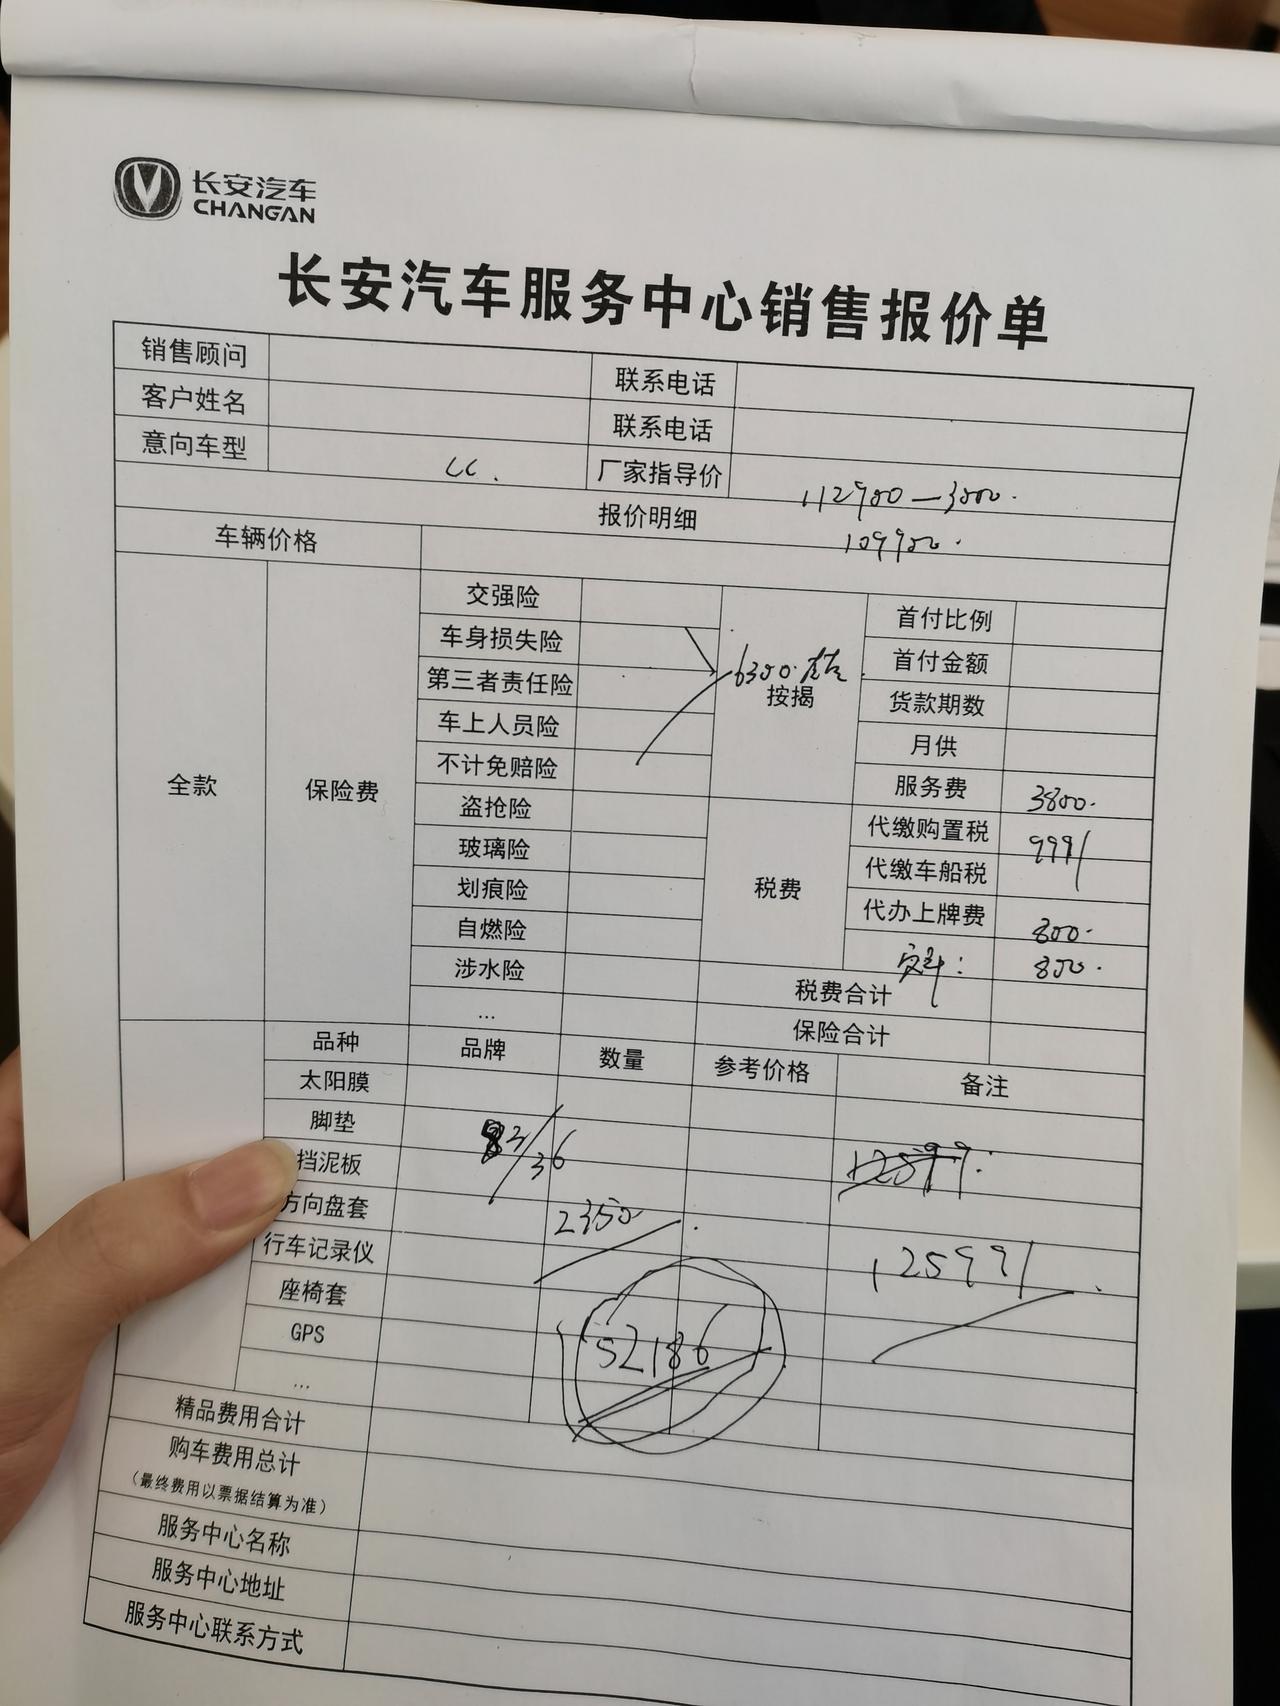 长安汽车
CHANGAN
长安汽车服务中心销售报价单
销售顾问 联系电话
客户姓名 联系电话
意向车型 CC. 厂家指导价 112900-3000.
报价明细
109900.
车辆价格
全款 保险费
交强险
车身损失险
第三者责任险
车上人员险
不计免赔险
盗抢险
玻璃险
划痕险
自燃险
涉水险
...
6300.左右
按揭
首付比例
首付金额
货款期数
月供
服务费 3800.
税费
代缴购置税 9991
代缴车船税
代办上牌费 800.
800.
税费合计
保险合计
品种 品牌 数量 参考价格 备注
太阳膜
脚垫
挡泥板
方向盘套
行车记录仪
座椅套
GPS
...
3/36
2350
125991
52186
精品费用合计
购车费用总计
(最终费用以票据结算为准)
服务中心名称
服务中心地址
服务中心联系方式